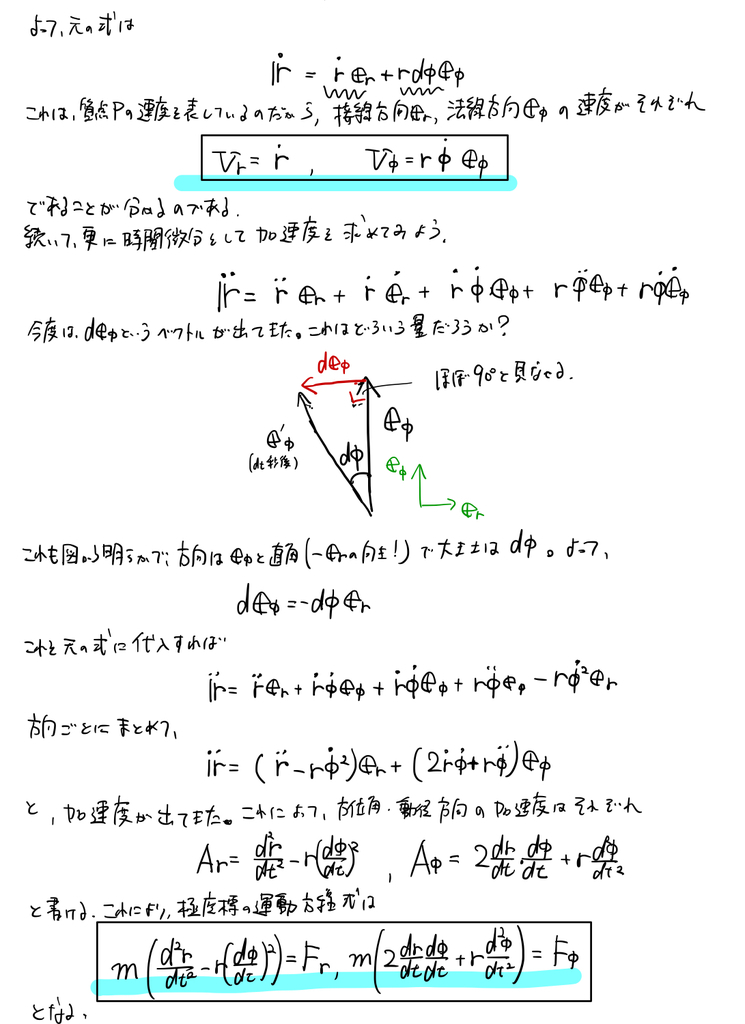 よって、元の式は
ṙ = ṙ e_r + r dφ e_φ
これは、質点Pの速度を表しているのだから、接線方向e_r, 法線方向e_φ の速度がそれぞれ
V_r = ṙ , V_φ = r φ̇ e_φ
であることが分かるのである.
続いて、更に時間微分をして加速度を求めてみよう.
r̈ = r̈ e_r + ṙ ė_r + ṙ φ̇ e_φ + r φ̈ e_φ + r φ̇ ė_φ
今度は、de_φというベクトルが出てきた。これはどういう量だろうか?
de_φ
ほぼ90°と見なせる.
e_φ
e'_φ
(dt秒後)
dφ
e_φ
e_r
これも図から明らかで、方向はe_φと直角(-e_rの向き!)で大きさはdφ。よって、
de_φ = -dφ e_r
これを元の式に代入すれば
r̈ = r̈ e_r + ṙ φ̇ e_φ + ṙ φ̇ e_φ + r φ̈ e_φ - r φ̇² e_r
方向ごとにまとめて、
r̈ = ( r̈ - r φ̇² ) e_r + ( 2ṙ φ̇ + r φ̈ ) e_φ
と, 加速度が出てきた。これによって、方位角・動径方向の加速度はそれぞれ
A_r = d²r/dt² - r(dφ/dt)² , A_φ = 2 dr/dt · dφ/dt + r d²φ/dt²
と書ける. これにより, 極座標の運動方程式は
m( d²r/dt² - r(dφ/dt)² ) = F_r , m( 2 dr/dt dφ/dt + r d²φ/dt² ) = F_φ
となる.